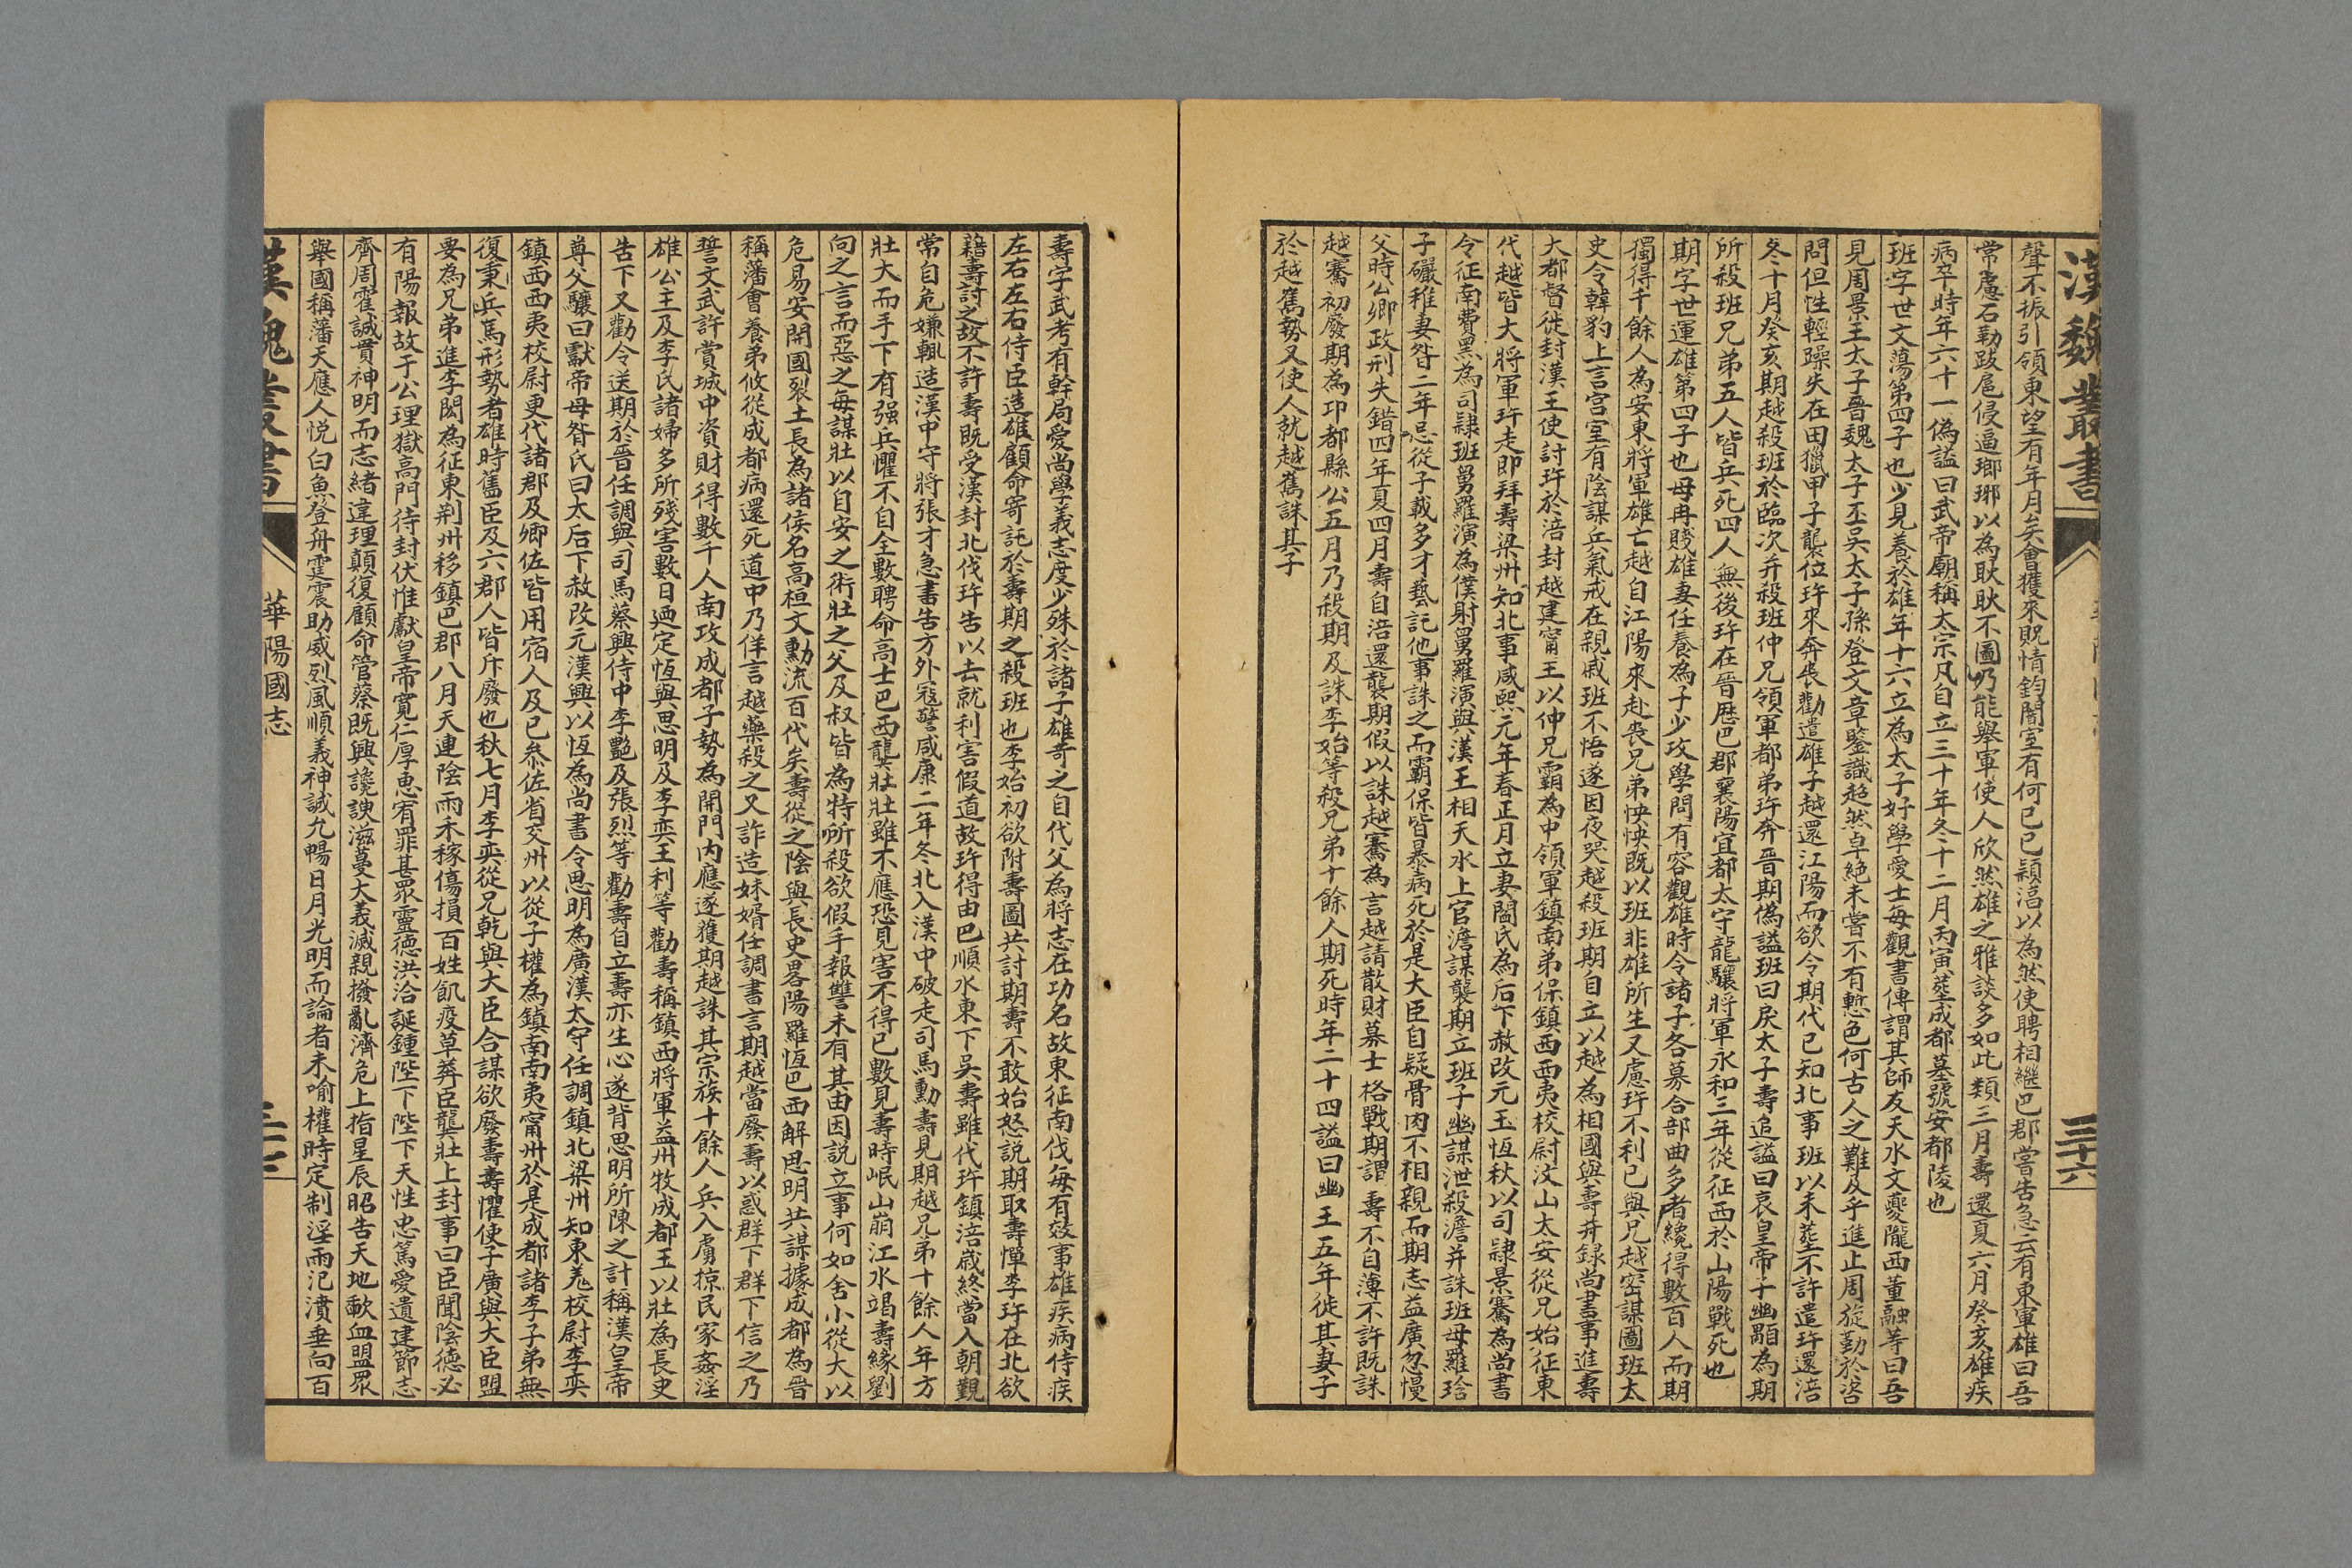 漢魏叢書
三十六
聲不振引領東望有年月矣會獲來貺情鈞闇室有何已已穎滔以為然使聘相繼巴郡嘗告急云有東軍雄曰吾
常慮石勒跋扈侵逼瑯琊以為耿耿不圖乃能舉軍使人欣然雄之雅談多如此類三月壽還夏六月癸亥雄疾
病卒時年六十一偽謚曰武帝廟稱太宗凡自立三十年冬十二月丙寅塟成都墓號安都陵也
班字世文蕩第四子也少見養於雄年十六立為太子好學愛士每觀書傳謂其師友天水文夔隴西董融等曰吾
見周景王太子晉魏太子丕吳太子孫登文章鑒識超然卓絕未嘗不有慙色何古人之難及乎進止周旋勤於咨
問但性輕躁失在田獵甲子襲位玝來奔喪勸遣雄子越還江陽而欲令期代已知北事班以未塟不許遣玝還涪
冬十月癸亥期越殺班於臨次并殺班仲兄領軍都弟玝奔晉期偽謚班曰戾太子壽追謚曰哀皇帝子幽顒為期
所殺班兄弟五人皆兵死四人無後玝在晉歷巴郡襄陽宜都太守龍驤將軍永和三年從征西於山陽戰死也
期字世運雄第四子也母冉賤雄妻任養為子少攻學問有容觀雄時令諸子各募合部曲多者纔得數百人而期
獨得千餘人為安東將軍雄亡越自江陽來赴喪兄弟怏怏既以班非雄所生又慮玝不利已與兄越密謀圖班太
史令韓豹上言宮室有陰謀兵氣戒在親戚班不悟遂因夜哭越殺班期自立以越為相國與壽并録尚書事進壽
大都督徙封漢王使討玝於涪封越建甯王以仲兄霸為中領軍鎮南弟保鎮西西夷校尉汶山太安從兄始征東
代越皆大將軍玝走即拜壽梁州知北事咸熙元年春正月立妻閻氏為后下赦改元玉恆秋以司隷景騫為尚書
令征南費黑為司隷班舅羅演為僕射舅羅演與漢王相天水上官澹謀襲期立班子幽謀泄殺澹并誅班母羅琀
子礹稚妻昝二年忌從子載多才藝託他事誅之而霸保皆暴病死於是大臣自疑骨肉不相親而期志益廣忽慢
父時公卿政刑失錯四年夏四月壽自涪還襲期假以誅越騫為言越請散財募士格戰期謂壽不自薄不許既誅
越騫初廢期為邛都縣公五月乃殺期及誅李始等殺兄弟十餘人期死時年二十四謚曰幽王五年徙其妻子
於越嶲勢又使人就越嶲誅其子
壽字武考有幹局愛尚學義志度少殊於諸子雄奇之自代父為將志在功名故東征南伐每有效事雄疾病侍疾
左右左右侍臣造雄顧命寄託於壽期之殺班也李始初欲附壽圖共討期壽不敢始怒說期取壽憚李玝在北欲
藉壽討之故不許壽既受漢封北伐玝告以去就利害假道故玝得由巴順水東下吳壽雖代玝鎮涪歲終當入朝覲
常自危嫌輒造漢中守將張才急書告方外寇警咸康二年冬北入漢中破走司馬勳壽見期越兄弟十餘人年方
壯大而手下有强兵懼不自全數聘命高士巴西龔壯壯雖不應恐見害不得已數見壽時岷山崩江水竭壽緣劉
向之言而惡之每謀壯以自安之術壯之父及叔皆為特所殺欲假手報讐未有其由因說立事何如舍小從大以
危易安開國裂土長為諸侯名高桓文勳流百代矣壽從之陰與長史畧陽羅恆巴西解思明共謀據成都為晉
稱藩會養弟攸從成都病還死道中乃佯言越藥殺之又詐造妹婿任調書言期越當廢壽以惑群下群下信之乃
誓文武許賞城中資財得數千人南攻成都子勢為開門內應遂獲期越誅其宗族十餘人兵入虜掠民家姦淫
雄公主及李氏諸婦多所殘害數日廼定恆與思明及李奕王利等勸壽稱鎮西將軍益州牧成都王以壯為長史
告下又勸令送期於晉任調與司馬蔡興侍中李艷及張烈等勸壽自立壽亦生心遂背思明所陳之計稱漢皇帝
尊父驤曰獻帝母昝氏曰太后下赦改元漢興以恆為尚書令思明為廣漢太守任調鎮北梁州知東羌校尉李奕
鎮西西夷校尉更代諸郡及卿佐皆用宿人及已叅佐省交州以從子權為鎮南南夷甯州於是成都諸李子弟無
復秉兵馬形勢者雄時舊臣及六郡人皆斥廢也秋七月李奕從兄乾與大臣合謀欲廢壽壽懼使子廣與大臣盟
要為兄弟進李閎為征東荆州移鎮巴郡八月天連陰雨禾稼傷損百姓飢疫草莽臣龔壯上封事曰臣聞陰德必
有陽報故于公理獄高門待封伏惟獻皇帝寬仁厚惠宥罪甚眾靈德洪洽誕鍾陛下陛下天性忠篤愛遺建節志
齊周霍誠貫神明而志緒違理顛復顧命管蔡既興讒諛滋蔓大義滅親撥亂濟危上指星辰昭告天地歃血盟眾
舉國稱藩天應人悅白魚登舟霆震助威烈風順義神誠允暢日月光明而論者未喻權時定制淫雨汜潰垂向百
漢魏叢書
華陽國志
三十七